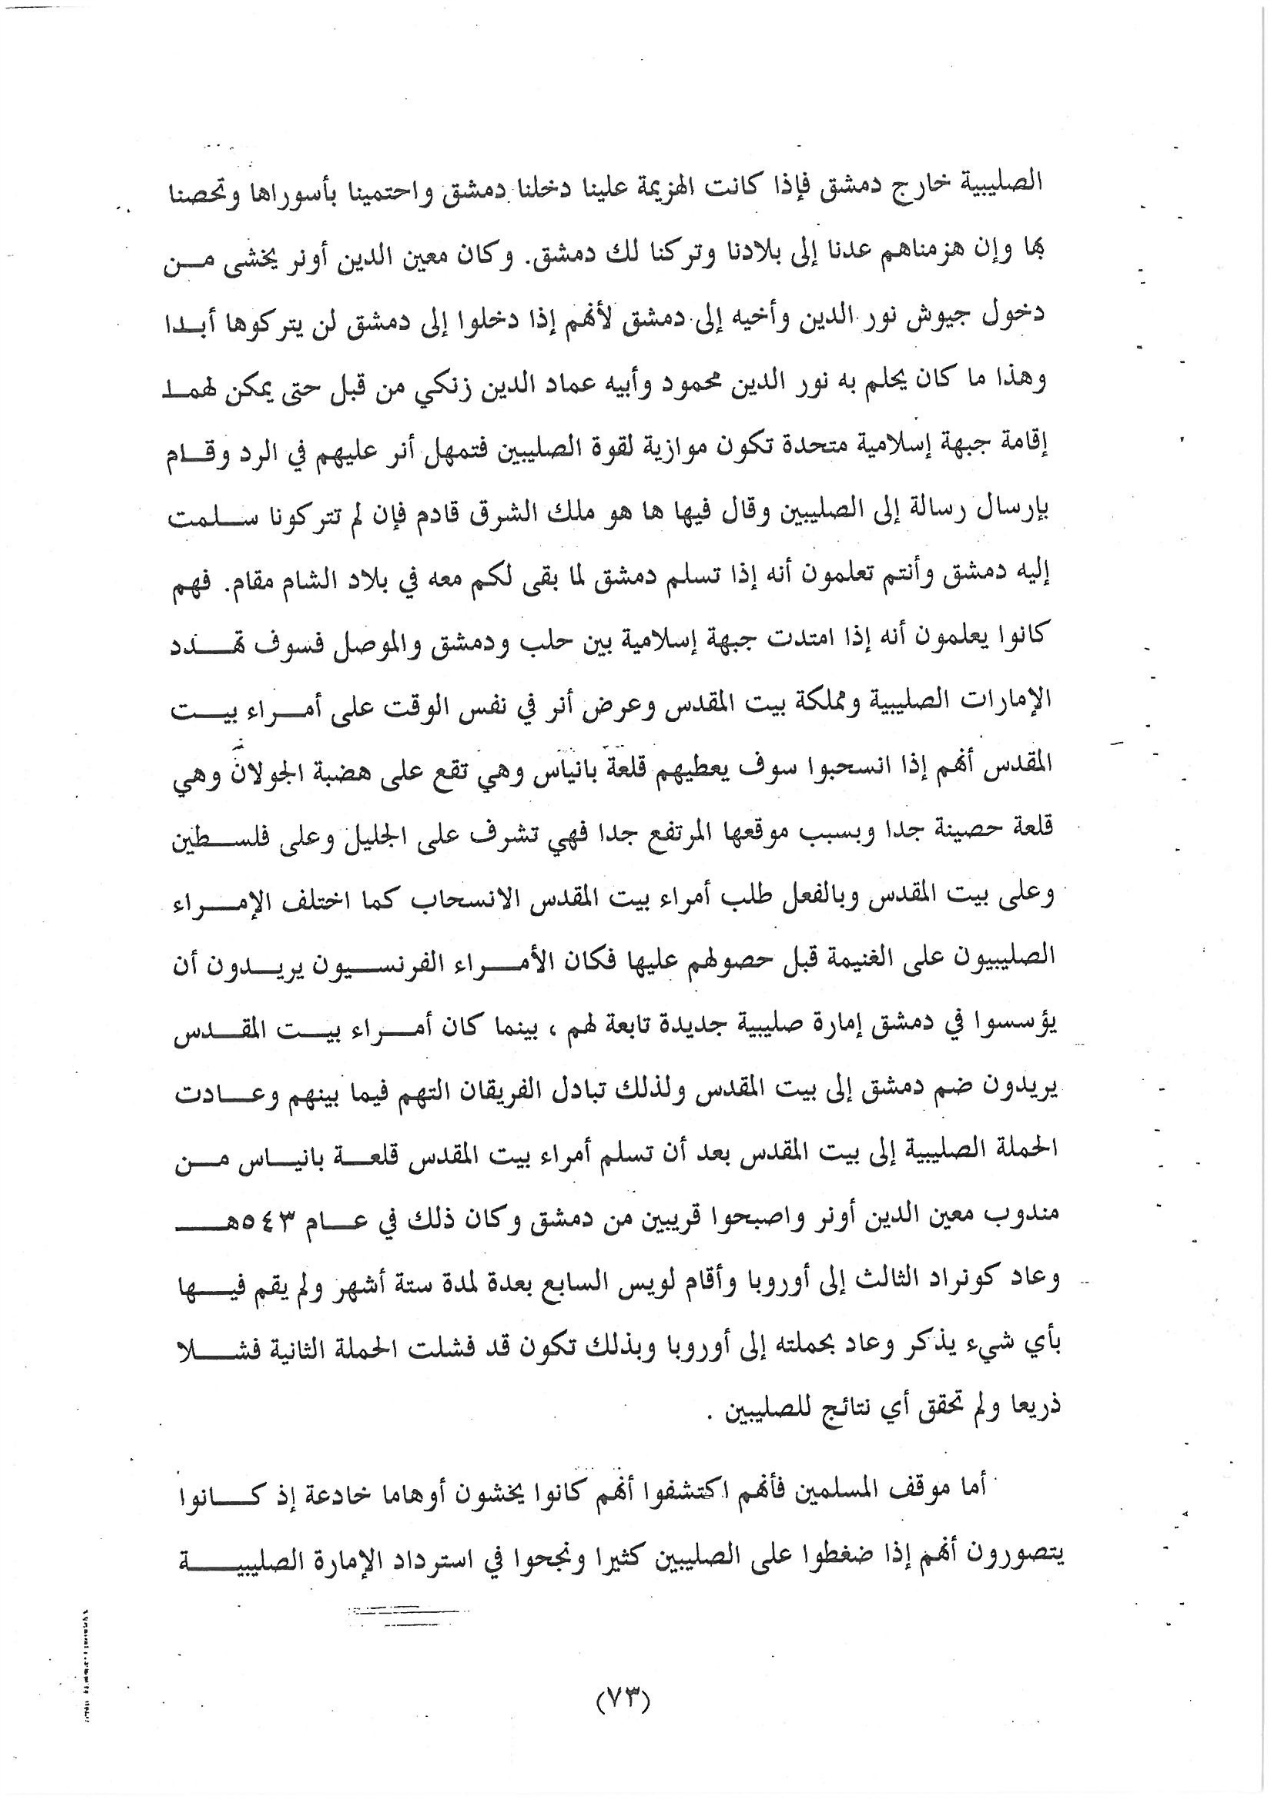 الصليبية خارج دمشق فإذا كانت الهزيمة علينا دخلنا دمشق واحتمينا بأسوراها وتحصنا
بها وإن هزمناهم عدنا إلى بلادنا وتركنا لك دمشق. وكان معين الدين أونر يخشى من
دخول جيوش نور الدين وأخيه إلى دمشق لأنهم إذا دخلوا إلى دمشق لن يتركوها أبدا
وهذا ما كان يحلم به نور الدين محمود وأبيه عماد الدين زنكي من قبل حتى يمكن لهما
إقامة جبهة إسلامية متحدة تكون موازية لقوة الصليبين فتمهل أنر عليهم في الرد وقام
بإرسال رسالة إلى الصليبين وقال فيها ها هو ملك الشرق قادم فإن لم تتركونا سلمت
إليه دمشق وأنتم تعلمون أنه إذا تسلم دمشق لما بقى لكم معه في بلاد الشام مقام. فهم
كانوا يعلمون أنه إذا امتدت جبهة إسلامية بين حلب ودمشق والموصل فسوف تهدد
الإمارات الصليبية ومملكة بيت المقدس وعرض أنر في نفس الوقت على أمراء بيت
المقدس أنهم إذا انسحبوا سوف يعطيهم قلعة بانياس وهي تقع على هضبة الجولان وهي
قلعة حصينة جدا وبسبب موقعها المرتفع جدا فهي تشرف على الجليل وعلى فلسطين
وعلى بيت المقدس وبالفعل طلب أمراء بيت المقدس الانسحاب كما اختلف الإمراء
الصليبيون على الغنيمة قبل حصولهم عليها فكان الأمراء الفرنسيون يريدون أن
يؤسسوا في دمشق إمارة صليبية جديدة تابعة لهم ، بينما كان أمراء بيت المقدس
يريدون ضم دمشق إلى بيت المقدس ولذلك تبادل الفريقان التهم فيما بينهم وعادت
الحملة الصليبية إلى بيت المقدس بعد أن تسلم أمراء بيت المقدس قلعة بانياس من
مندوب معين الدين أونر واصبحوا قريبين من دمشق وكان ذلك في عام ٥٤٣هـ
وعاد كونراد الثالث إلى أوروبا وأقام لويس السابع بعدة لمدة ستة أشهر ولم يقم فيها
بأي شيء يذكر وعاد بحملته إلى أوروبا وبذلك تكون قد فشلت الحملة الثانية فشلا
ذريعا ولم تحقق أي نتائج للصليبين .
أما موقف المسلمين فأنهم اكتشفوا أنهم كانوا يخشون أوهاما خادعة إذ كانوا
يتصورون أنهم إذا ضغطوا على الصليبين كثيرا ونجحوا في استرداد الإمارة الصليبية
(٧٣)